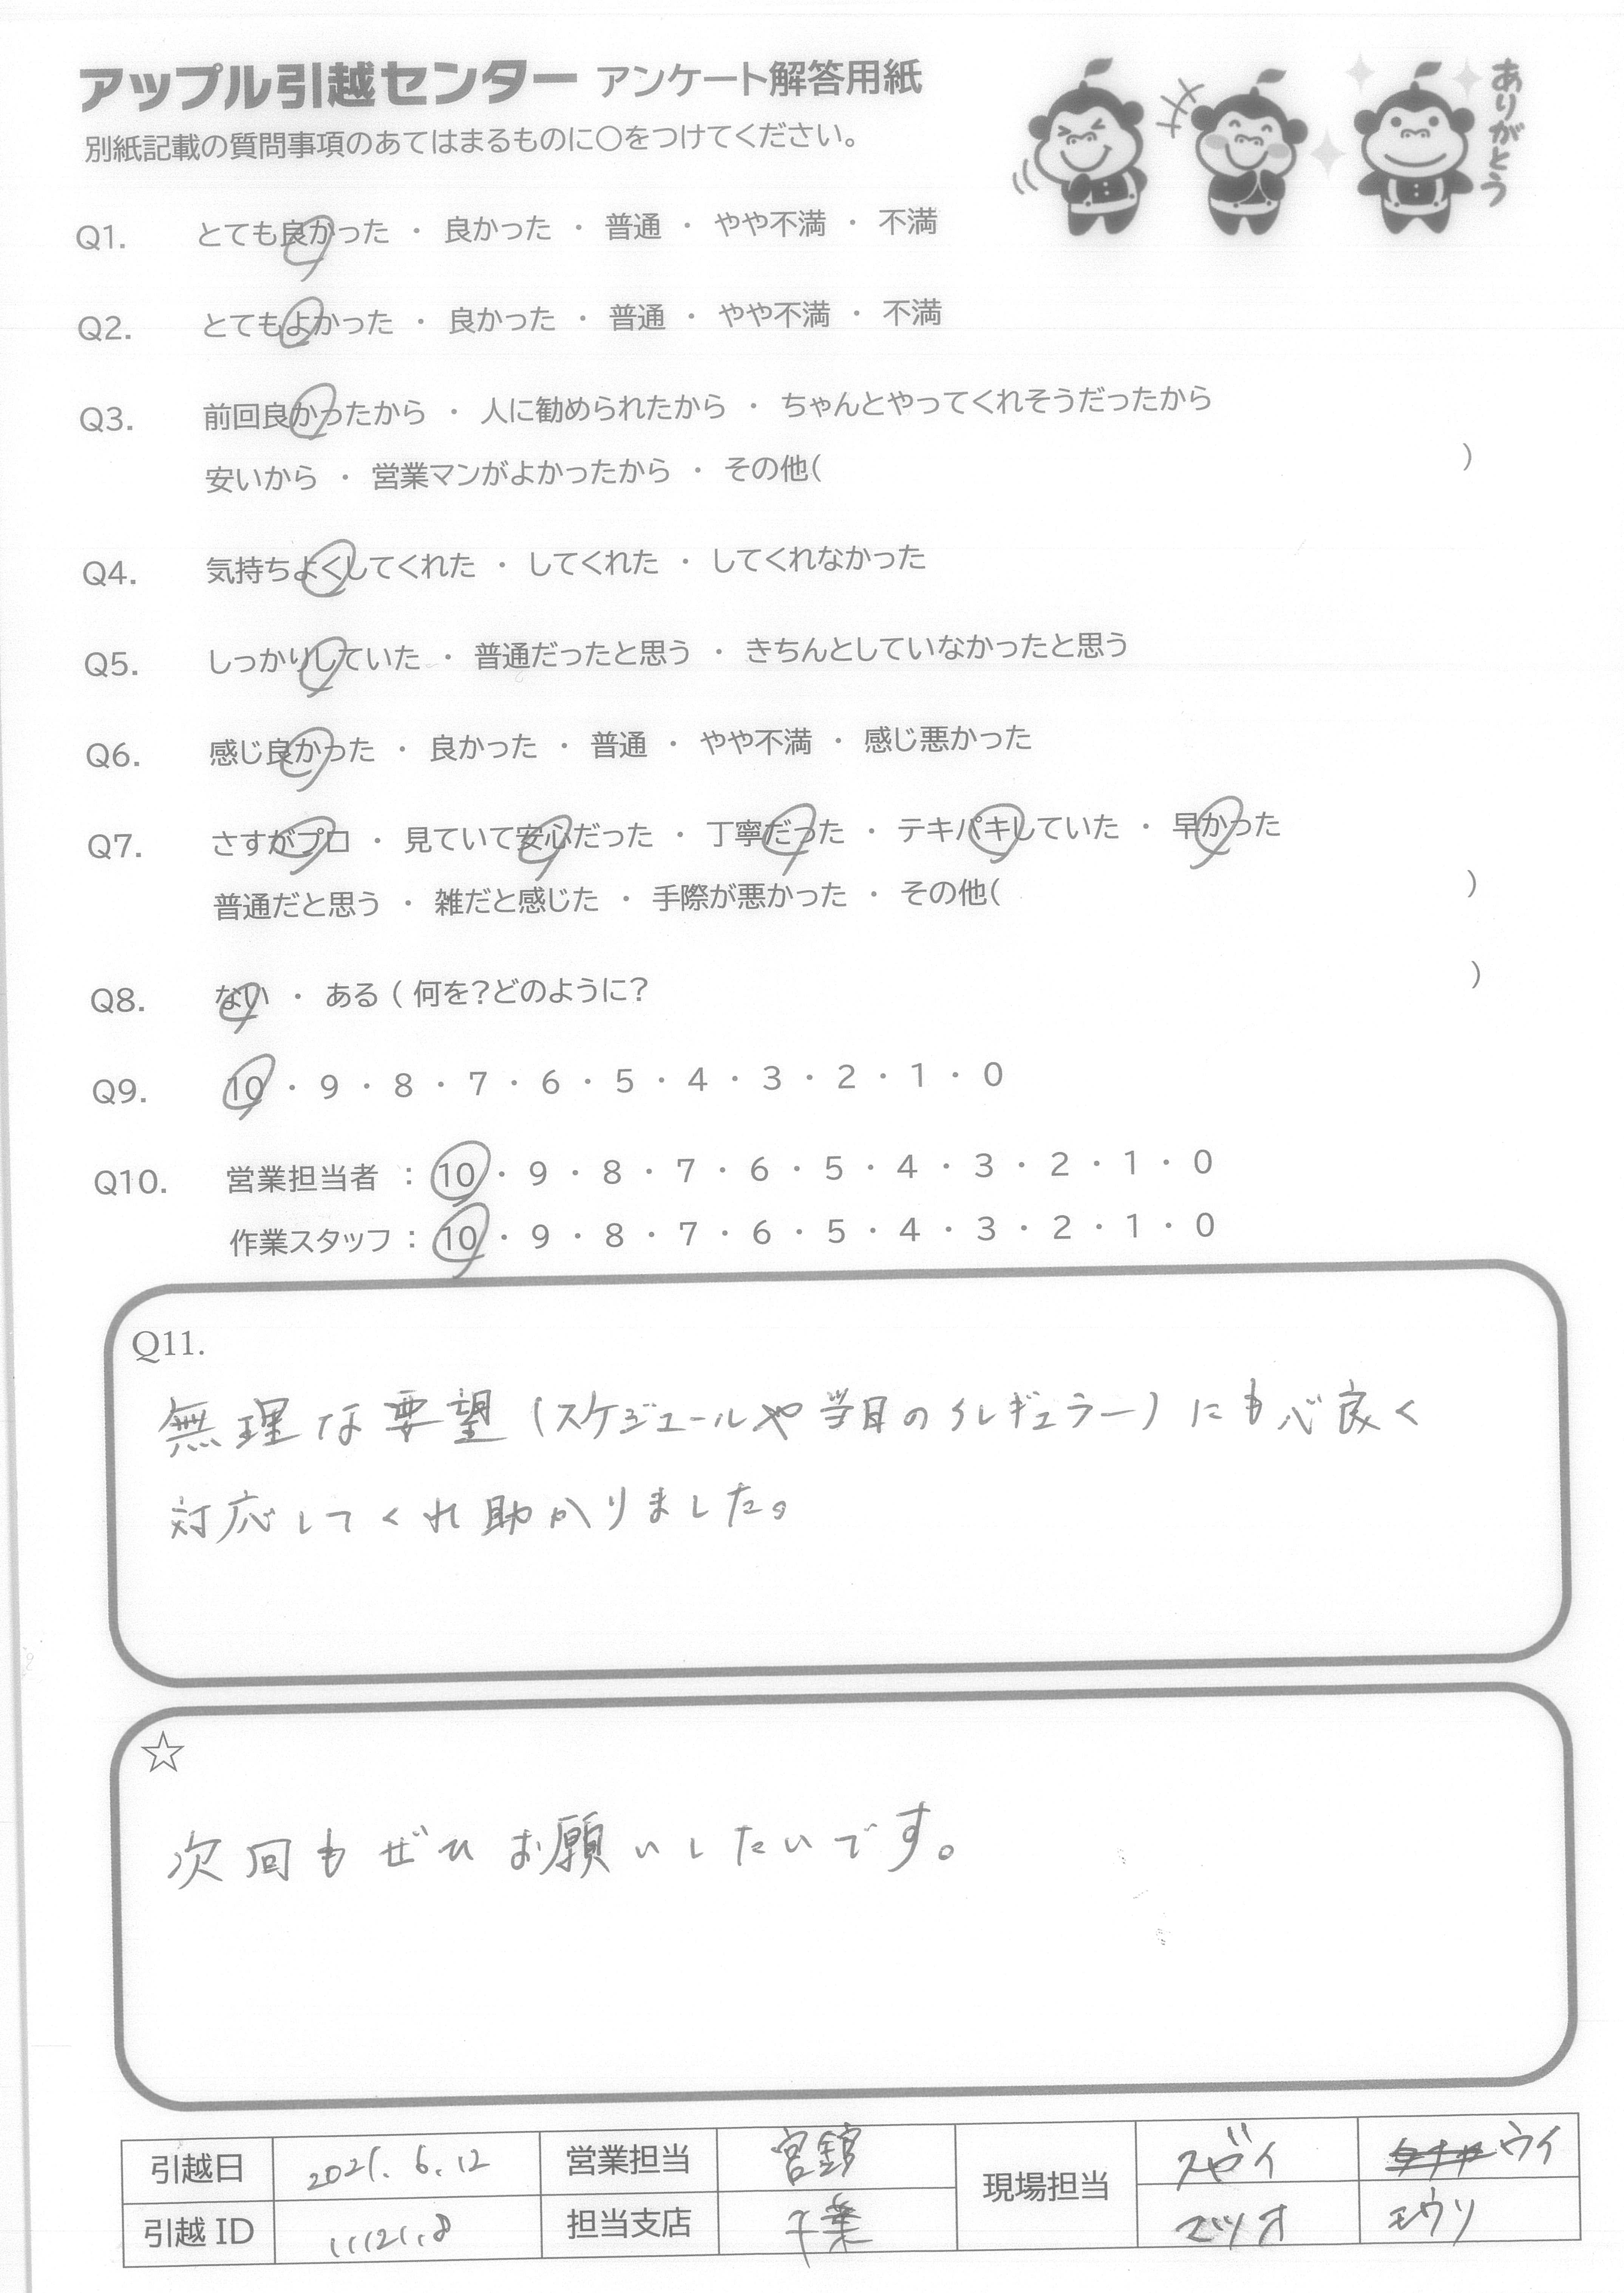 アップル引越センター アンケート解答用紙
ありがとう
別紙記載の質問事項のあてはまるものに○をつけてください。
Q1. とても良かった ・ 良かった ・ 普通 ・ やや不満 ・ 不満
Q2. とてもよかった ・ 良かった ・ 普通 ・ やや不満 ・ 不満
Q3. 前回良かったから ・ 人に勧められたから ・ ちゃんとやってくれそうだったから
安いから ・ 営業マンがよかったから ・ その他( )
Q4. 気持ちよくしてくれた ・ してくれた ・ してくれなかった
Q5. しっかりしていた ・ 普通だったと思う ・ きちんとしていなかったと思う
Q6. 感じ良かった ・ 良かった ・ 普通 ・ やや不満 ・ 感じ悪かった
Q7. さすがプロ ・ 見ていて安心だった ・ 丁寧だった ・ テキパキしていた ・ 早かった
普通だと思う ・ 雑だと感じた ・ 手際が悪かった ・ その他( )
Q8. ない ・ ある ( 何を?どのように? )
Q9. 10 ・ 9 ・ 8 ・ 7 ・ 6 ・ 5 ・ 4 ・ 3 ・ 2 ・ 1 ・ 0
Q10. 営業担当者 : 10 ・ 9 ・ 8 ・ 7 ・ 6 ・ 5 ・ 4 ・ 3 ・ 2 ・ 1 ・ 0
作業スタッフ : 10 ・ 9 ・ 8 ・ 7 ・ 6 ・ 5 ・ 4 ・ 3 ・ 2 ・ 1 ・ 0
Q11.
無理な要望(スケジュールや当日のイレギュラー)にも心良く
対応してくれ助かりました。
☆
次回もぜひお願いしたいです。
引越日 2021.6.12 営業担当 宮舘 現場担当 ウイ
引越 ID 担当支店 千葉 マツオ モウリ